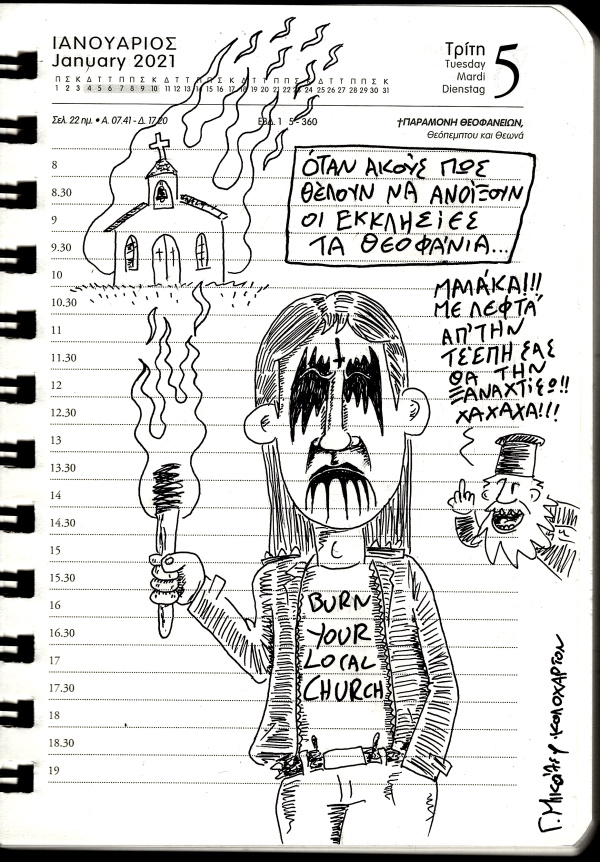 ΙΑΝΟΥΑΡΙΟΣ
January 2021
Π Σ Κ Δ Τ Τ Π Π Σ Κ Δ Τ Τ Π Π Σ Κ Δ Τ Τ Π Π Σ Κ Δ Τ Τ Π Π Σ Κ
1 2 3 4 5 6 7 8 9 10 11 12 13 14 15 16 17 18 19 20 21 22 23 24 25 26 27 28 29 30 31
Τρίτη
Tuesday
Mardi
Dienstag
5
Σελ. 22 ημ. • Α. 07.41 - Δ. 17.20
ΕΒΔ. 1 5 - 360
†ΠΑΡΑΜΟΝΗ ΘΕΟΦΑΝΕΙΩΝ,
Θεόπεμπτου και Θεωνά
ΌΤΑΝ ΑΚΟΎΣ ΠΩΣ
ΘΈΛΟΥΝ ΝΑ ΑΝΟΊΞΟΥΝ
ΟΙ ΕΚΚΛΗΣΊΕΣ
ΤΑ ΘΕΟΦΆΝΙΑ...
ΜΑΛΆΚΑ!!!
ΜΕ ΛΕΦΤΆ
ΑΠ' ΤΗΝ
ΤΣΈΠΗ ΣΑΣ
ΘΑ ΤΗΝ
ΞΑΝΑΧΤΊΣΩ!!
ΧΑΧΑΧΑ!!!
BURN
YOUR
LOCAL
CHURCH
8
8.30
9
9.30
10
10.30
11
11.30
12
12.30
13
13.30
14
14.30
15
15.30
16
16.30
17
17.30
18
18.30
19